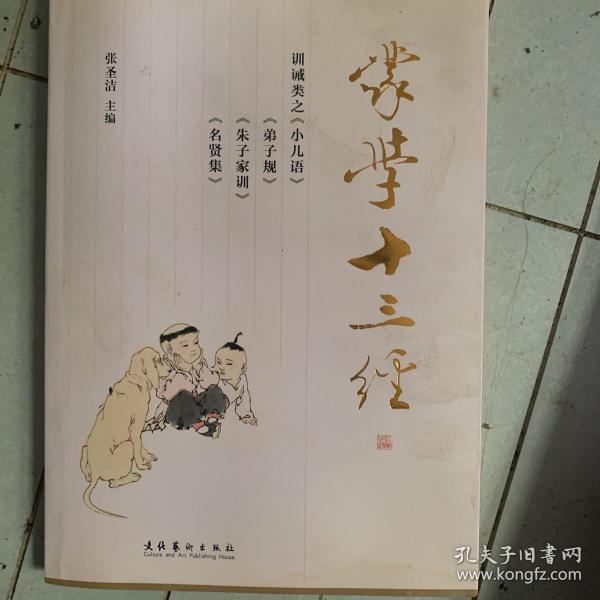 蒙学十三经
训诫类之《小儿语》
《弟子规》
《朱子家训》
《名贤集》
张圣洁 主编
文化艺术出版社
Culture and Art Publishing House
孔夫子旧书网
www.kongfz.com